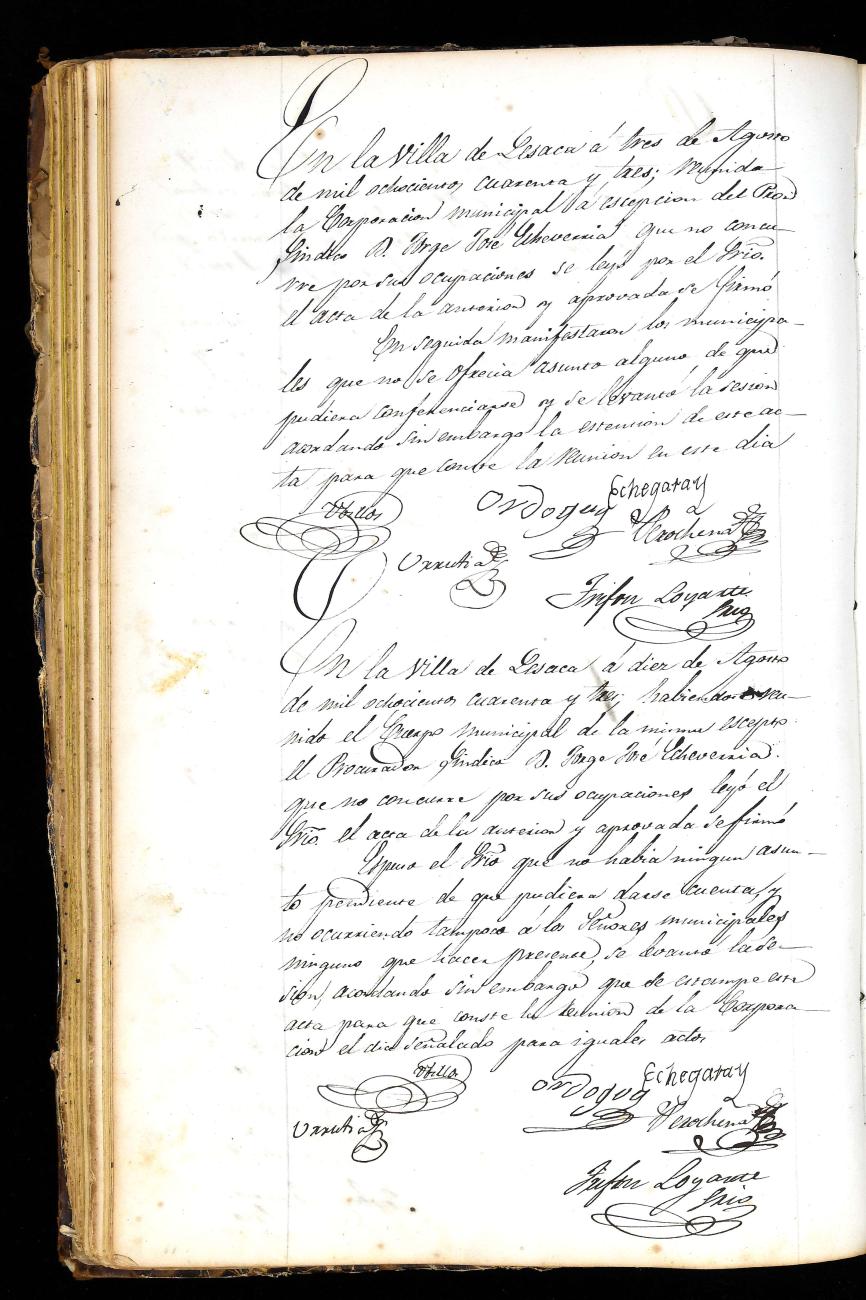 En la Villa de Lesaca á tres de Agosto
de mil ochocientos cuarenta y tres; reunida
la Corporacion municipal á escepcion del Pror
Sindico D. Jorge José Echeverria que no concu-
rre por sus ocupaciones se leyó por el Srio.
el acta de la anterior y aprovada se firmó
En seguida manifestaron los municipa-
les que no se ofrecia asunto alguno de que
pudiera conferenciarse y se levantó la sesion
acordando sin embargo la estension de este ac-
ta para que conste la reunion en este dia
Ubillos Ordoqui Echegaray
Urrutia Perochena
Trifon Loyarte
Srio
En la Villa de Lesaca á diez de Agosto
de mil ochocientos cuarenta y tres; habiendose reu-
nido el Cuerpo municipal de la misma escepto
el Procurador Sindico D. Jorge José Echeverria.
que no concurre por sus ocupaciones leyó el
Srio. el acta de la anterior y aprovada se firmó
Espuso el Srio que no habia ningun asun-
to pendiente de que pudiera darse cuenta, y
no ocurriendo tampoco á los Señores municipales
ninguno que hacer presente, se levantó la se-
sion, acordando sin embargo que se estampe esta
acta para que conste la reunion de la Corpora-
cion el dia señalado para iguales actos
Ubillos Ordoqui Echegaray
Urrutia Perochena
Trifon Loyarte
Srio